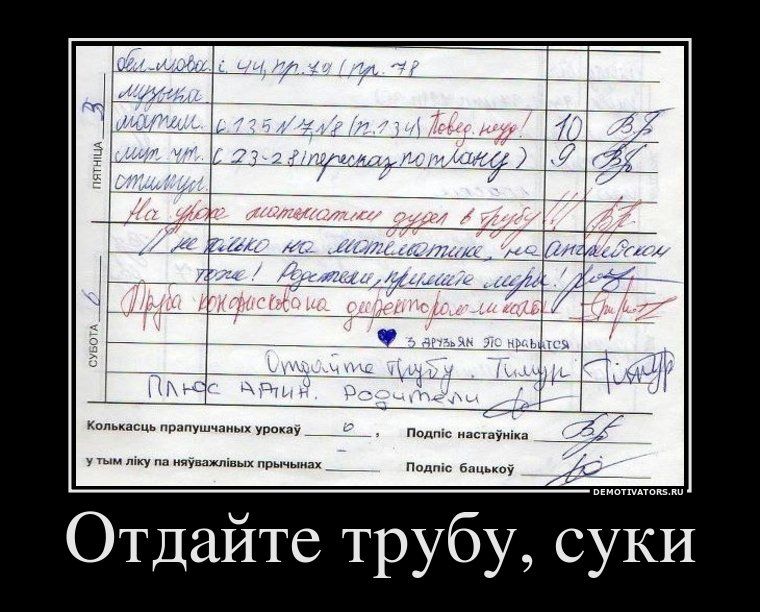 ПЯТНІЦА 3
бел. мова с. 44, пр. 79 (пр. 78
музыка
матем. с. 135 N 7, N 8 (п. 134) Повед. неуд! 10
лит. чт. с 23-28 (пересказ по плану) 9
стимул.
На уроке математики дудел в трубу!!!
И не только на математике, на английском
тоже! Родители, примите меры!
СУБОТА 6
Труба конфискована директором школы
♥ 3 друзьям это нравится
Отдайте трубу. Тимур
Плюс Адин. Родители
Колькасць прапушчаных урокаў 6, Подпіс настаўніка
у тым ліку па няўважлівых прычынах – Подпіс бацькоў
DEMOTIVATORS.RU
Отдайте трубу, суки